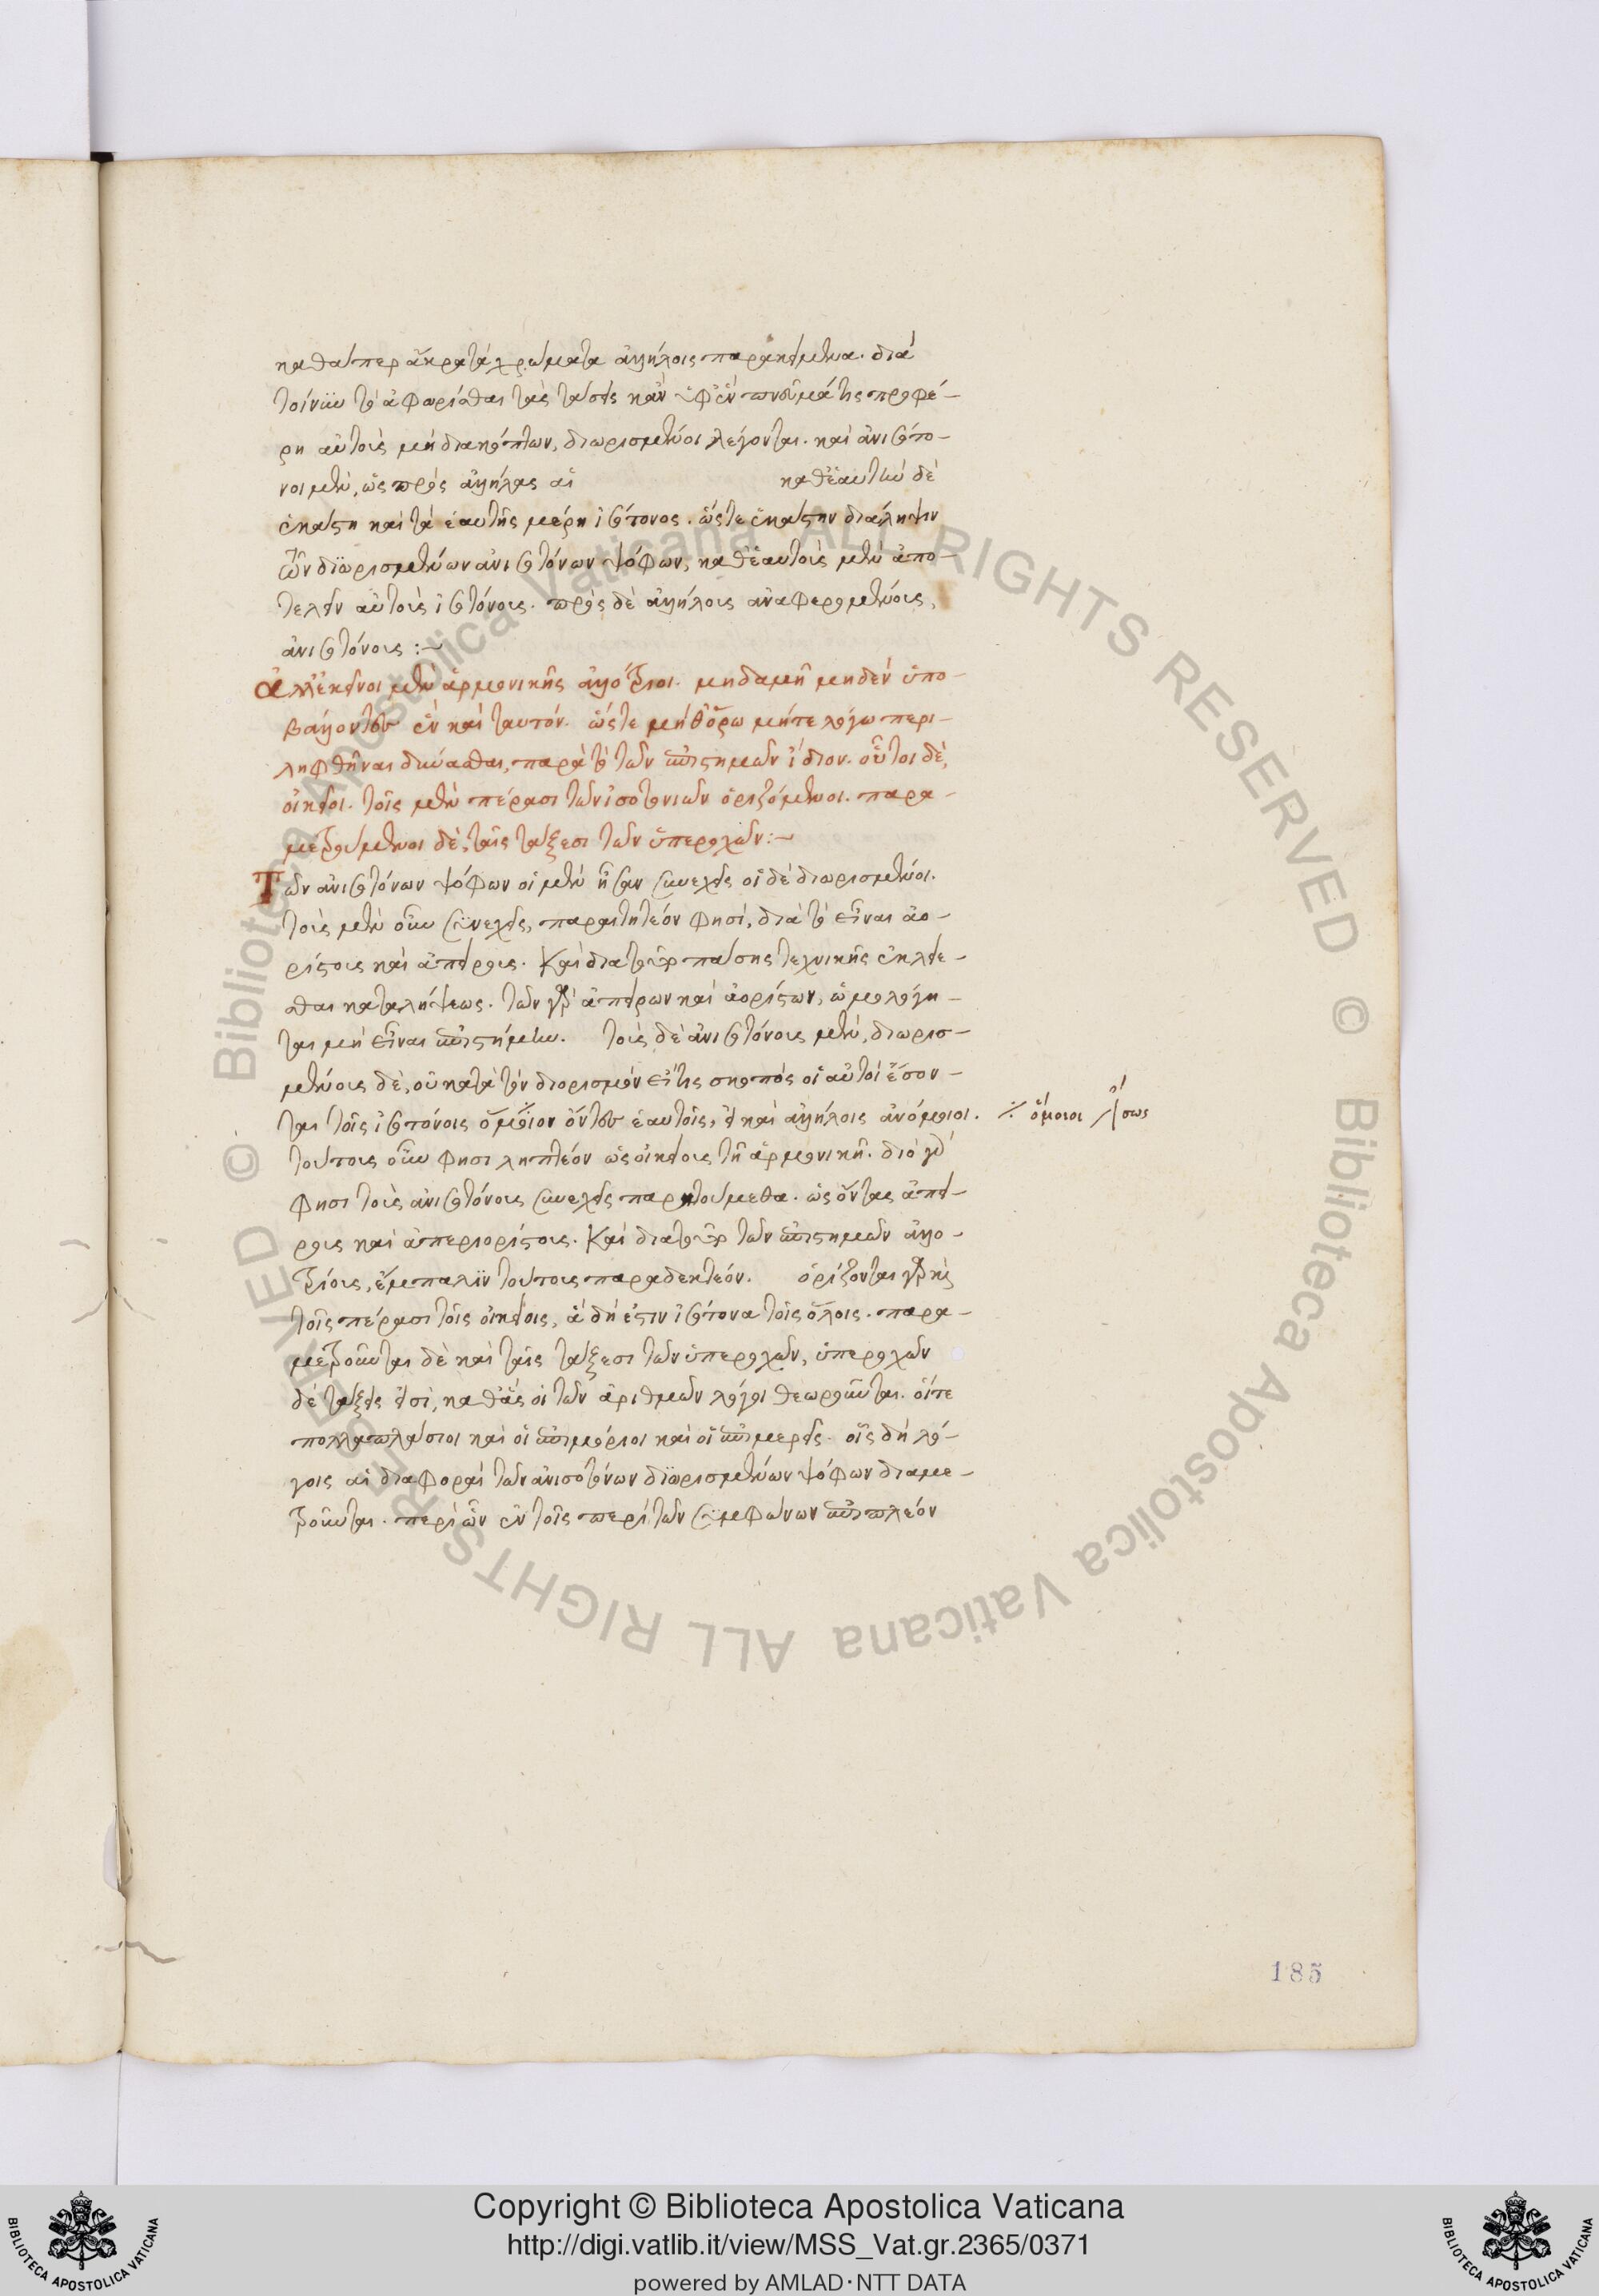 καθάπερ ἄκρατα χρώματα ἀλλήλοις παρακείμενα. διὰ
τοίνυν τὸ ἀφωρίσθαι τὰς τάσεις κἂν ὑφ' ἓν πνεῦμά τις προφέ-
ρη αὐτοὺς μὴ διακόπτων, διωρισμένοι λέγονται. καὶ ἀνισότο-
νοι μὲν, ὡς πρὸς ἀλλήλας αἱ καθ' ἑαυτὴν δὲ
ἑκάστη κατὰ τὰ ἑαυτῆς μέρη ἰσότονος. ὥστε ἑκάστην διάληψιν
τῶν διωρισμένων ἀνισοτόνων ψόφων, καθ' ἑαυτοὺς μὲν ἀπο-
τελεῖν αὐτοὺς ἰσοτόνους. πρὸς δὲ ἀλλήλους ἀναφερομένους,
ἀνισοτόνους :~
Ἀλλ' ἐκεῖνοι μὲν ἁρμονικῆς ἀλλότριοι. μηδαμῆ μηδὲν ὑπο-
βάλλοντες ἓν καὶ ταυτόν. ὥστε μήθ' ὅρω μήτε λόγω περι-
ληφθῆναι δύνασθαι, παρὰ τὸ τῶν ἐπιστημῶν ἴδιον. οὗτοι δὲ,
οἰκεῖοι. τοῖς μὲν πέρασι τῶν ἰσοτονιῶν ὁριζόμενοι. παρα-
μετρούμενοι δὲ, ταῖς τάξεσι τῶν ὑπεροχῶν :~
Τῶν ἀνισοτόνων ψόφων οἱ μὲν ἦσαν συνεχεῖς οἱ δὲ διωρισμένοι.
τοὺς μὲν οὖν συνεχεῖς, παραιτητέον φησί, διὰ τὸ εἶναι ἀο-
ρίστους καὶ ἀπείρους. καὶ διὰ τοῦτο πάσης τεχνικῆς ἐκκλείε-
σθαι καταλήψεως. τῶν γὰρ ἀπείρων καὶ ἀορίστων, ὡμολόγη-
ται μὴ εἶναι ἐπιστήμην. τοὺς δὲ ἀνισοτόνους μὲν, διωρισ-
μένους δὲ, οὐ κατὰ τὸν διορισμὸν εἴ τις σκοπὸς οἱ αὐτοὶ ἔσον-
ται τοῖς ἰσοτόνοις ὅμοιον ὄντες ἑαυτοῖς, εἰ καὶ ἀλλήλοις ἀνόμοιοι. ⁒ ὅμοιοι ἴσως
τούτους οὖν φησι ληπτέον ὡς οἰκείους τῆ ἁρμονικῆ. διὸ γὰρ
φησι τοὺς ἀνισοτόνους συνεχεῖς παρῃτούμεθα. ὡς ὄντας ἀπεί-
ρους καὶ ἀπεριορίστους. καὶ διὰ τοῦτο τῶν ἐπιστημῶν ἀλλο-
τρίους, ἔμπαλιν τούτους παραδεκτέον. ὁρίζονται γὰρ καὶ
τοῖς πέρασι τοῖς οἰκείοις, ἃ δή ἐστιν ἰσότονα τοῖς ὅλοις. παρα-
μετροῦνται δὲ καὶ ταῖς τάξεσι τῶν ὑπεροχῶν, ὑπεροχῶν
δὲ τάξεις εἰσὶ, καθ' ἃς οἱ τῶν ἀριθμῶν λόγοι θεωροῦνται. οἵ τε
πολλαπλάσιοι καὶ οἱ ἐπιμόριοι καὶ οἱ ἐπιμερεῖς. οἷς δὴ λό-
γοις αἱ διαφοραὶ τῶν ἀνισοτόνων διωρισμένων ψόφων διαμε-
τροῦνται. περὶ ὧν ἐν τοῖς περὶ τῶν συμφώνων ἐπιπλέον
185
© Biblioteca Apostolica Vaticana ALL RIGHTS RESERVED
© Biblioteca Apostolica Vaticana ALL RIGHTS RESERVED
BIBLIOTECA APOSTOLICA VATICANA
Copyright © Biblioteca Apostolica Vaticana
http://digi.vatlib.it/view/MSS_Vat.gr.2365/0371
powered by AMLAD·NTT DATA
BIBLIOTECA APOSTOLICA VATICANA